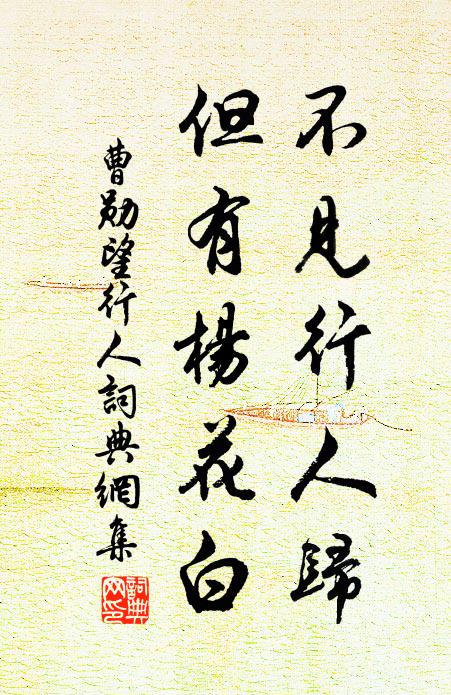 不見行人歸
但有楊花白
曹勛望行人詞典網集
詞典
网印